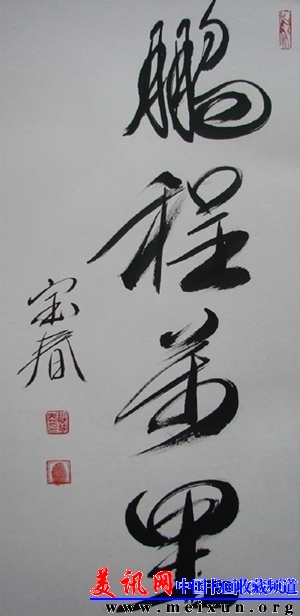 鹏程万里
宝春
美讯网 中国书画收藏频道
www.meixun.org